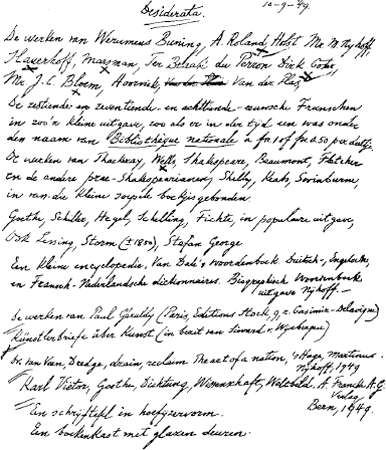 Desiderata. 10-9-'49.
De werken van Werumeus Buning, A. Roland Holst, M. Nijhoff,
Slauerhoff, Marsman, Ter Braak, du Perron, Dick Coster,
Mr. J.C. Bloem, Hoornik, Van der Plas,
De zestiende en zeventiende- en achttiende-eeuwsche Franschen
in zoo'n kleine uitgave, zoo als er in der tijd een was onder
den naam van Bibliothèque nationale à fr. 1 of fr. 0.50 per deeltje.
De werken van Thackeray, Wells, Shakespeare, Beaumont, Fletcher
en de andere prae-Shakespearianen, Shelly, Keats, Swinburne,
in van die kleine soepele boekjes gebonden.
Goethe, Schiller, Hegel, Schelling, Fichte, in populaire uitgave,
Ook Lessing, Storm (± 1800), Stefan George
Een kleine encyclopedie. Van Dale's woordenboek Duitsch-, Engelsch-,
en Fransch-Nederlandsche dictionnaires. Biographisch Woordenboek
uitgave Nijhoff.-
De werken van Paul Géraldy (Paris, Editions Stock, 7, r. Casimir-Delavigne)
Künstlerbriefe über Kunst (in bezit van
Dr. van Veen, Dredge, drain, reclaim. The art of a nation, 's Hage, Martinus
Nijhoff, 1949
Karl Viëtor, Goethe, Dichtung, Wissenschaft, Weltbild. A. Francke A.G.
Verlag
Bern, 1949.
Een schrijftafel in hoefijzervorm.
Een boekenkast met glazen deuren.